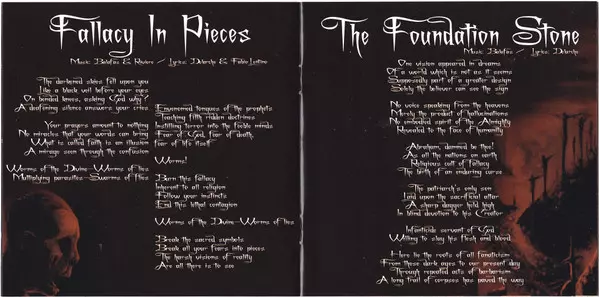 Fallacy In Pieces
Music: Balafas & Riviere / Lyrics: Delarche & Fabio Lentino
The darkened skies fall upon you
Like a black veil before your eyes
On bended knees, asking God why?
A deafening silence answers your cries
Your prayers amount to nothing
No miracles that your words can bring
What is called faith is an illusion
A mirage seen through the confusion
Worms of the Divine-Worms of lies
Multiplying parasites-Swarms of flies
Envenomed tongues of the prophets
Teaching filth ridden doctrines
Instilling terror into the feeble minds
Fear of God, fear of death
Fear of life itself
Worms!
Burn this fallacy
Inherent to all religion
Follow your instincts
End this lethal contagion
Worms of the Divine-Worms of lies
Break the sacred symbols
Break all your fears into pieces
The harsh visions of reality
Are all there is to see
The Foundation Stone
Music: Balafas / Lyrics: Delarche
One vision appeared in dreams
Of a world which is not as it seems
Supposedly part of a greater design
Solely the believer can see the sign
No voice speaking from the heavens
Merely the product of hallucinations
No embodied spirit of the Almighty
Revealed to the face of humanity
Abraham, damned be thee!
As all the nations on earth
Religious call of fallacy
The birth of an enduring curse
The patriarch's only son
Laid upon the sacrificial altar
A sharp dagger held high
In blind devotion to his Creator
Infanticide servant of God
Willing to slay his flesh and blood
Here lie the roots of all fanaticism
From these dark eyes to our present day
Through repeated acts of barbarism
A long trail of corpses has paved the way